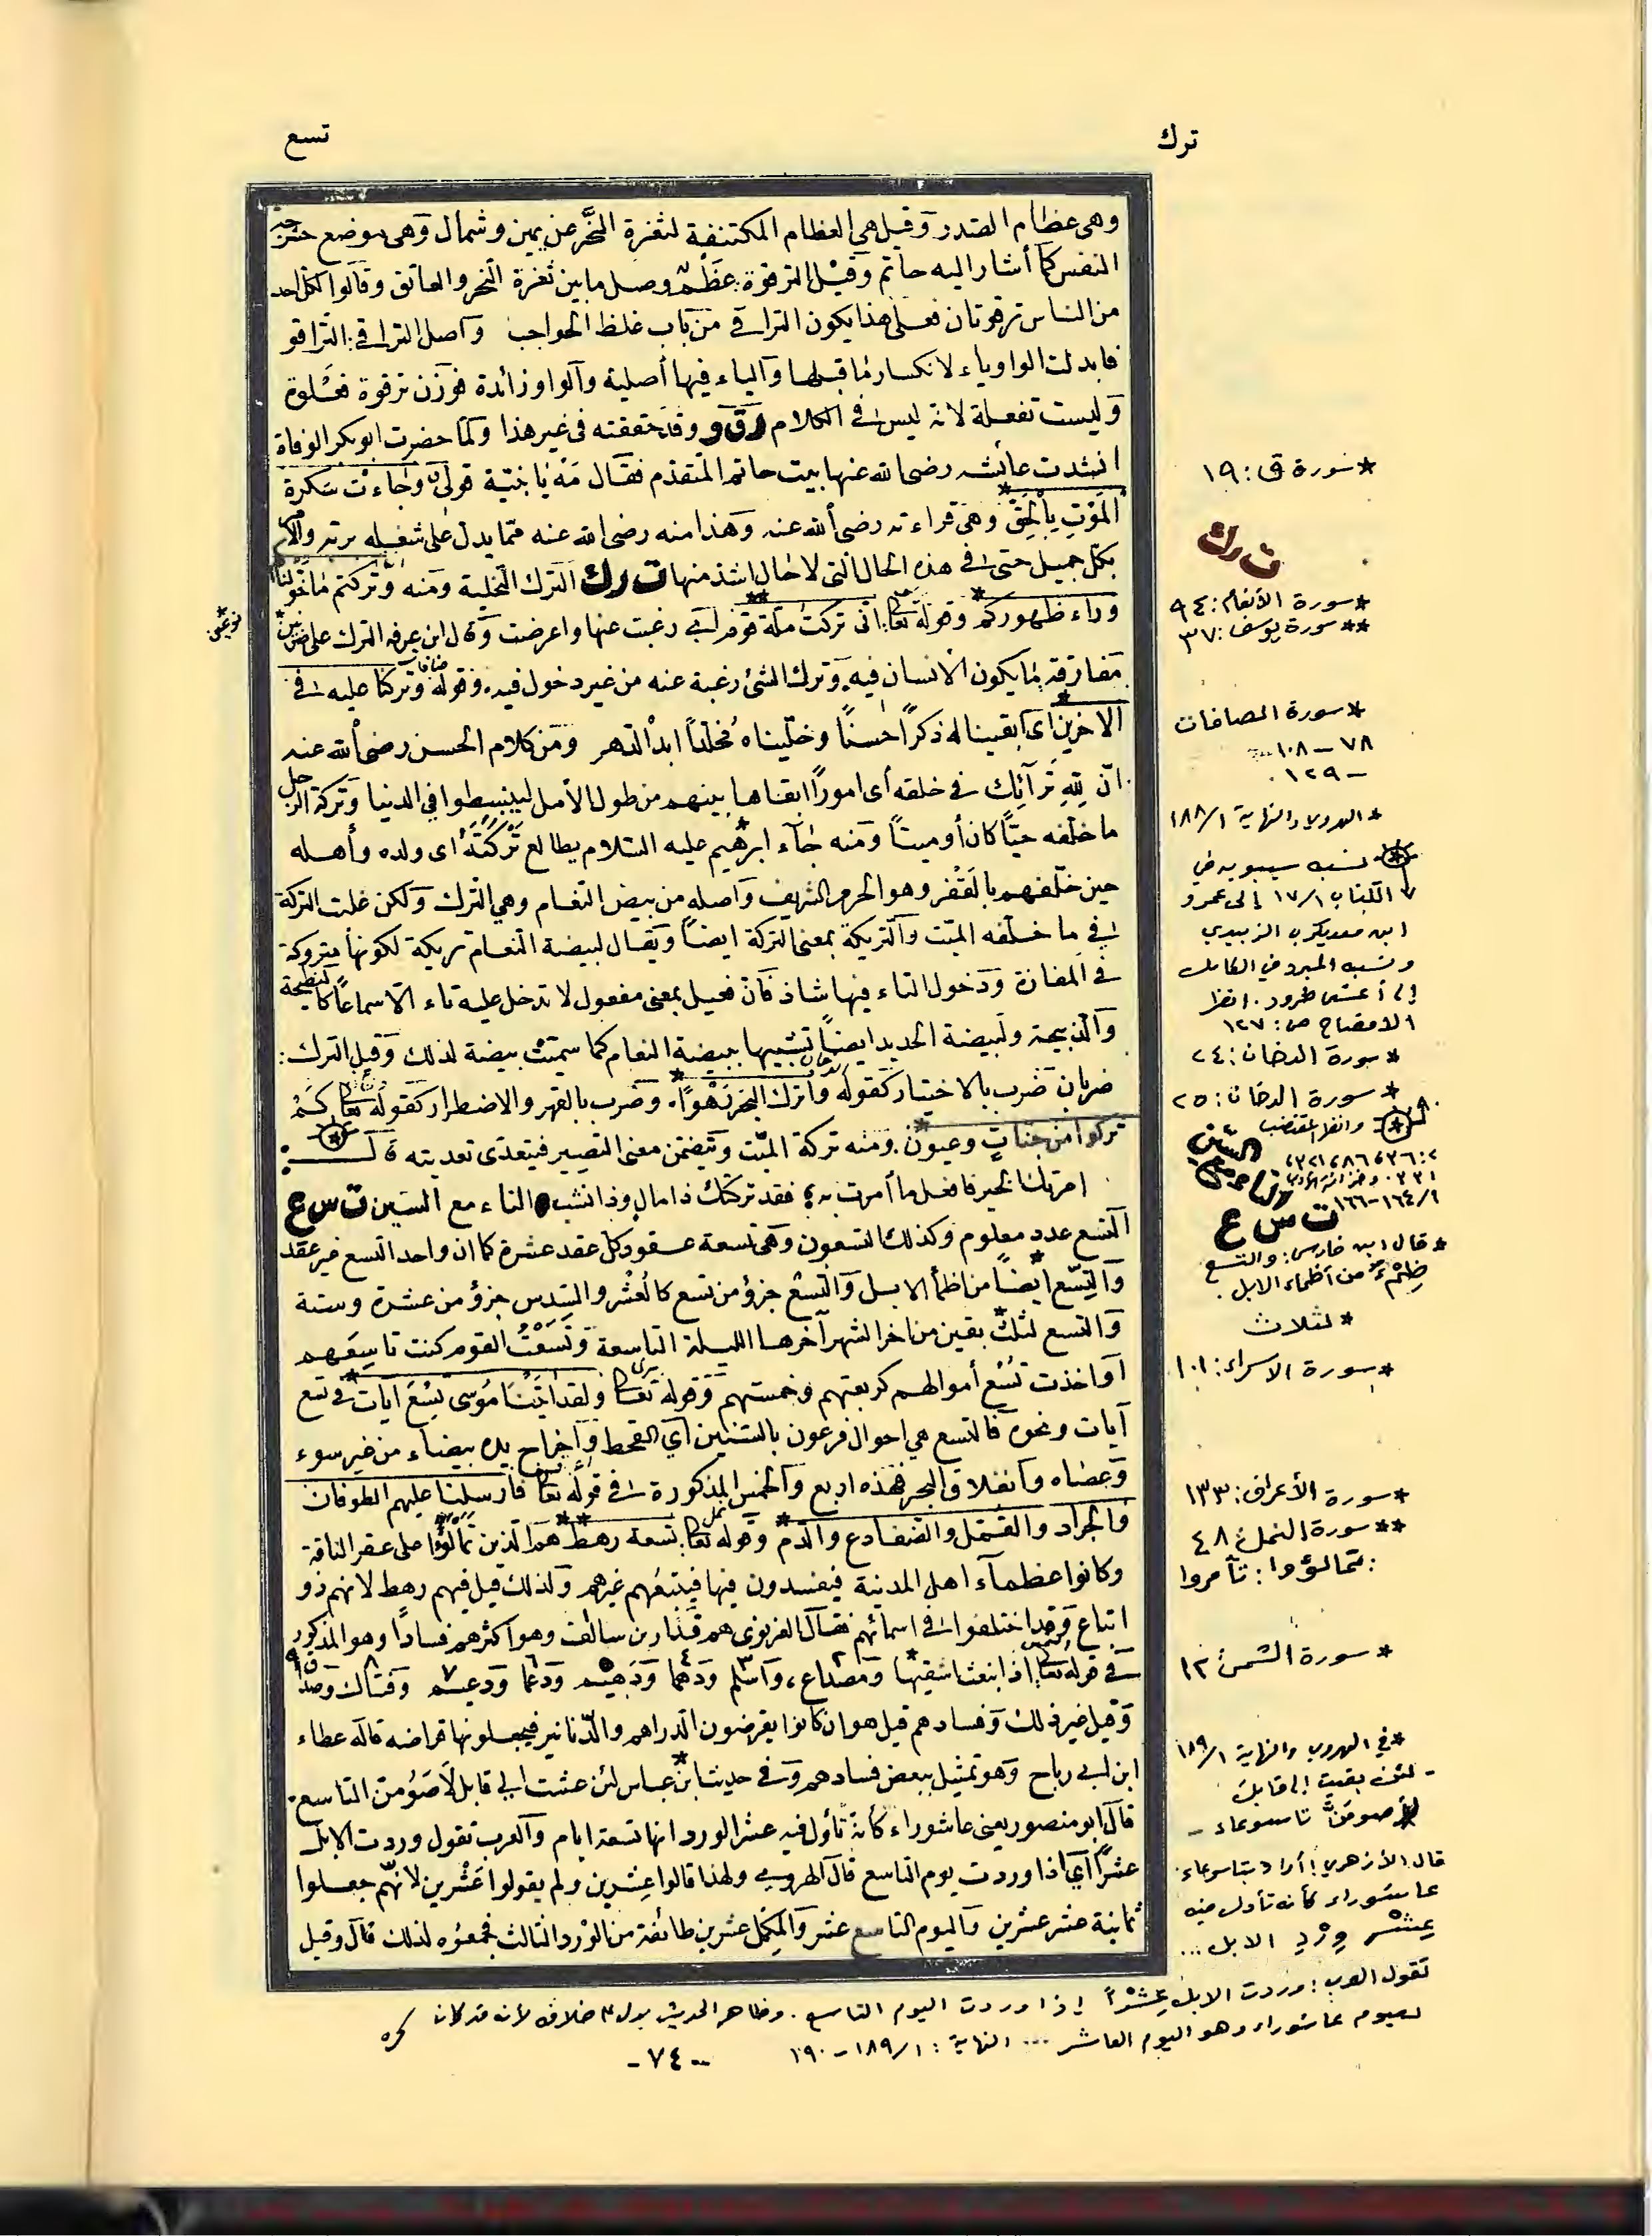 ترك
تسع
وهى عظام الصدر وقيل هى العظام المكتنفة لثغرة النحر عن يمين وشمال وهى موضع حشرجة
النفس كما أشار اليه حاتم وقيل الترقوة عظم وصل ما بين ثغرة النحر والعاتق وقالوا لكل احد
من الناس ترقوتان فعلى هذا يكون التراقى من باب غلظ الحواجب وأصل التراقى التراقو
فابدلت الواو ياء لانكسار ما قبلها والياء فيها أصلية والواو زائدة فوزن ترقوة فعلوة
وليست تفعلة لانه ليس فى الكلام رق و وقد حققته فى غير هذا ولما حضرت ابو بكر الوفاة
انشدت عائشه رضى الله عنها بيت حاتم المتقدم فقال مه يا بنية قولى وجاءت سكرة
الموت بالحق وهى قراءته رضى الله عنه وهذا منه رضى الله عنه مما يدل على شغله بربه
بكل جميل حتى فى هذه الحال التى لا حال اشد منها ت رك الترك التخلية ومنه وتركتم ما خولناكم
وراء ظهوركم وقوله تعا انى تركت ملة قوم أي رغبت عنها واعرضت وقال ابن عرفه الترك على ضربين
مفارقة ما يكون الانسان فيه وترك الشئ رغبة عنه من غير دخول فيه وقوله وتركنا عليه فى
الاخرين أى ابقينا له ذكرًا حسنًا وخليناه مخلدًا ابد الدهر ومن كلام الحسن رضى الله عنه
ان لله ترآئك فى خلقه أى امورًا ابقاها بينهم من طول الأمل لينبسطوا في الدنيا وتركة الرجل
ما خلفه حيًّا كان أو ميتًا ومنه جاء ابرهيم عليه السلام يطالع تركته أى ولده وأهله
حين خلفهم بالقفر وهو الحرم الشريف وأصله من بيض النعام وهي الترك ولكن غلبت التركة
فى ما خلفه الميت والتريكة بمعنى التركة ايضًا ويقال لبيضة النعام تريكة لكونها متروكة
فى المفازة ودخول التاء فيها شاذ فان فعيل بمعنى مفعول لا تدخل عليه تاء الا سماعًا كالنطيحة
والذبيحة ولبيضة الحديد ايضًا تشبيها ببيضة النعام كما سميت بيضة لذلك وقيل الترك:
ضربان ضرب بالاختيار كقوله واترك البحر رهوًا. وضرب بالقهر والاضطرار كقوله تعا كم
تركوا من جنات وعيون. ومنه تركة الميت ويتضمن معنى التصيير فيتعدى تعديته قال:
امرتك الخير فافعل ما أمرت به فقد تركتك ذا مال وذا نشب التاء مع السين ت س ع
التسع عدد معلوم وكذلك التسعون وهى تسعة عقود كل عقد عشرة كما ان واحد التسع غير عقد
والتسع ايضًا من اظمأ الابل والتسع جزؤ من تسع كالعشر والسدس جزؤ من عشرة وستة
والتسع لثلث بقين من اخر الشهر آخرها الليلة التاسعة وتسعت القوم كنت تاسعهم
أو اخذت تسع أموالهم كربعتهم وخمستهم وقوله تعا ولقد اتينا موسى تسع ايات فى تسع
آيات ونحوه فالتسع هي احوال فرعون بالسنين أي القحط واخراج يده بيضاء من غير سوء
وعصاه وانفلاق البحر فهذه اربع والخمس المذكورة فى قوله تعا فأرسلنا عليهم الطوفان
والجراد والقمل والضفادع والدم وقوله تعا تسعة رهط هم الذين تمالؤا على عقر الناقة
وكانوا عظماء اهل المدينة فيفسدون فيها فيتبعهم غيرهم ولذلك قيل فيهم رهط لانهم ذو
اتباع وقد اختلفوا فى اسمائهم فقال الغزنوى هم قذار بن سالف وهو اكثرهم فسادًا وهو المذكور
فى قوله تعا اذ انبعث اشقيها ومصداع، وأسلم ودهما ودهيم ودعما ودعيم وقتال
وقيل غير ذلك وفسادهم قيل هو ان كانوا يقرضون الدراهم والدنانير فيجعلونها قراضه قاله عطاء
ابن ابى رباح وهو تمثيل ببعض فسادهم وفى حديث ابن عباس لئن عشت إلى قابل لأصومن التاسع.
قال ابو منصور يعنى عاشوراء كأنه تأول فيه عشر الورد انها تسعة ايام والعرب تقول وردت الابل
عشرًا أي اذا وردت يوم التاسع قال الهروى ولهذا قالوا عشرين ولم يقولوا عشرين لانهم جعلوا
ثمانية عشر عشرين واليوم التاسع عشر والمكمل عشرين طائفة من الورد الثالث فجمعوه لذلك قال وقيل
* سورة ق: ١٩
ت رك
* سورة الأنعام: ٩٤
** سورة يوسف: ٣٧
* سورة الصافات
٧٨ – ١٠٨
– ١٢٩
* الهروي والنهاية ١/١٨٨
* نسبه سيبويه في
الكتاب ١/١٧ إلى عمرو
ابن معديكرب الزبيدي
ونسبه المبرد في الكامل
إلى أعشى طرود. انظر
الافصاح ص: ١٢٧
* سورة الدخان: ٢٤
* سورة الدخان: ٢٥
* وانظر المقتضب
ت س ع
* قال ابن فارس: والتسع
ظِمْءٌ من أظماء الابل.
* لثلاث
* سورة الاسراء: ١٠١
* سورة الأعراف: ١٣٣
** سورة النمل: ٤٨
: تمالؤوا: تآمروا
* سورة الشمس: ١٢
* في الهروي والنهاية ١/١٨٩
– لئن بقيت إلى قابل
لأصومَنَّ تاسوعاء –
قال الأزهري: أراد بتاسوعاء
عاشوراء كأنه تأول فيه
عِشْر وِرْدِ الابل ...
تقول العرب: وردت الابل عِشْرًا إذا وردت اليوم التاسع. وظاهر الحديث يدل على خلافه لأنه قد كان
يصوم عاشوراء وهو اليوم العاشر ... النهاية: ١/١٨٩ – ١٩٠
كره
- ٧٤ -